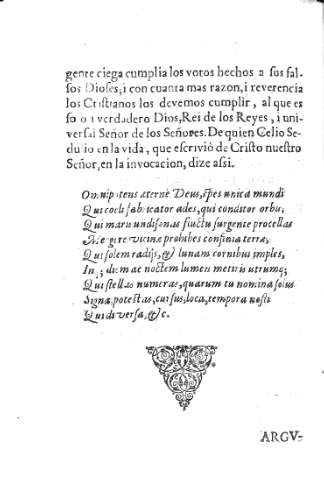 gente ciega cumplia los votos hechos a sus fal-
sos Dioses, i con cuanta mas razon, i reverencia
los Cristianos los devemos cumplir, al que es
so o i verdadero Dios, Rei de los Reyes, i uni-
versal Señor de los Señores. De quien Celio Se-
du io en la vida, que escriviò de Cristo nuestro
Señor, en la invocacion, dize assi.
Omnip tens æterne Deus, spes unica mundi
Qui cœli fabricator ades, qui conditor orbis,
Qui maris undisonas fluctu surgente procellas
vicina prohibes confinia terræ,
Qui solem radijs, & lunam cornibus imples,
In diem ac noctem lumen metiris utrumq;
Qui stellas numeras, quarum tu nomina solus
Signa, potestas, cursus, loca, tempora nosti
Qui diversa, &c.
ARGV-